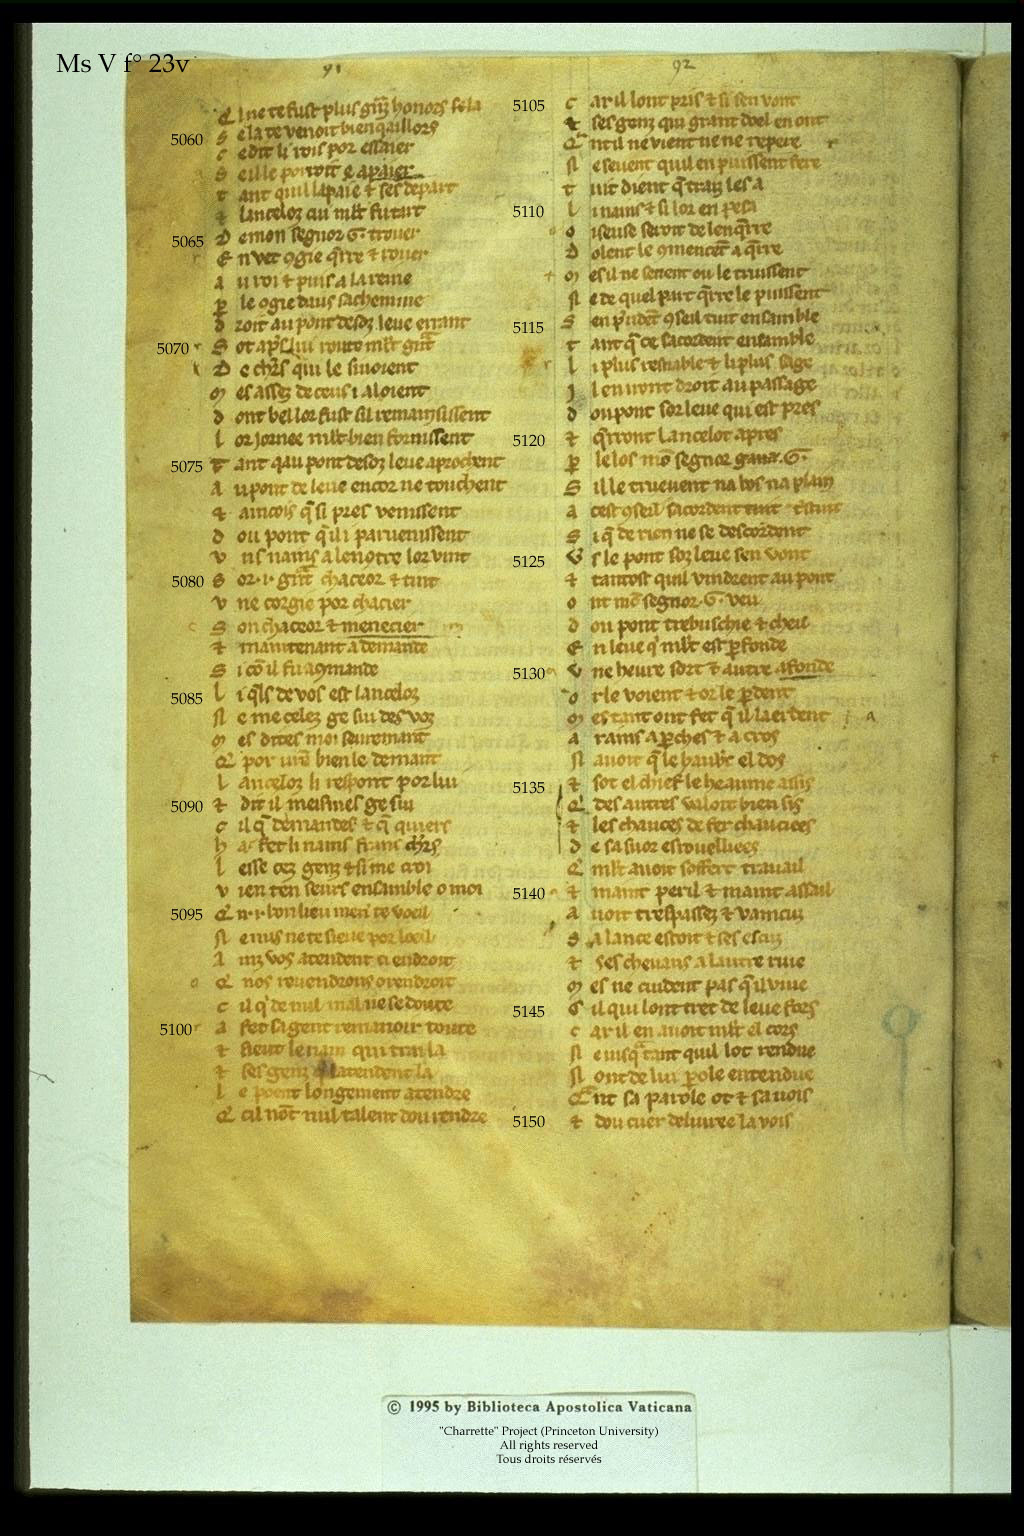 Ms V f° 23v
91
92
5060
s ela te venoit bien qaillors
c e dit li rois por essaier
s eille porroit apaier
t ant quil lapaie ⁊ ses depart
⁊ lancelоz qui ml̄t fu tart
D e mon segnor G. trouer
E n vet q̄rre ⁊ rouer
5065
a u roi ⁊ puis a la reine
d roit au pont desoz leue errant
5070
D e chl̄rs qui le siuoient
m es assez de ceus i aloient
d ont bel lor fust sil remainsissent
l or jornee ml̄t bien fornissent
5075
t ant qau pont desoz leue aprochent
A u pont de leue encor ne touchent
⁊ aincois q̄ si pres venissent
d ou pont q̄l i paruenissent
v ns nains a lencotre lor vint
5080
s or .i. gn̄t chaceor ⁊ tint
v ne corgie por chacier
s on chaceor ⁊ menecier
⁊ maintenant a demande
s i cō il fu
5085
l i q̄ls de vos est lanceloz
N e me celez ge sui des voz
m es dites moi seuremant
Q por bien le demant
l anceloz li respont por lui
5090
⁊ dit il meismes ge sui
c il q̄ demandes ⁊ q̄ quiers
h a fet li nains frans chl̄rs
l esse cez genz ⁊ si me croi
v ien ten seus ensamble o moi
5095
Q n .i. bon lieu men te voeil
N e nus ne te sieue por loeil
A inz vos atendent ci endroit
Q nos reuendrons orendroit
c il q̄ de nul mal ne se doute
5100
a fet sa gent remanoir toute
⁊ sieut le nain qui trai la
⁊ ses genz latendent la
l e poent longement atendre
Q cil nōt nul talent dou rendre
5105
c ar il lont pris ⁊ si sen vont
⁊ ses genz qui grant doel en ont
Q nt il ne vient ne ne repere
N e seuent quil en puissent fere
t uit dient q̄ traiz les a
5110
l i nains ⁊ si lor en pesa
o iseuse seroit de lenq̄rre
D olent le 9mencent a q̄rre
m es il ne seuent ou le truissent
N e de quel part q̄rre le puissent
5115
t ant q̄ ce sacordent ensamble
l i plus resnable ⁊ li plus sage
j l en iront droit au passage
d ou pont sor leue qui est pres
5120
⁊ q̄rront Lancelot apres
p̄ le los mō segnor G.
S il le trueuent na bos na plain
a cest 9seil sacordent tuit
s i q̄ de rien ne se descordent
5125
V s le pont soz leue sen vont
⁊ tantost quil vindrent au pont
o nt mō segnor .G. veu
d ou pont trebuschie ⁊ cheu
E n leue q̄ ml̄t est p̄fonde
5130
V ne heure sort ⁊ autre afonde
o r le voient ⁊ or le p̄dent
m es tant ont fet q̄ il laerdent
a rains a p̄ches ⁊ a cros
N auoit q̄ le haub̄c el dos
5135
⁊ sor el chief le heaume assis
Q des autres valoit bien sis
⁊ les chauces de fer chaucices
d e sa suor enrouelliees
Q ml̄t auoit soffert trauail
5140
⁊ maint peril ⁊ maint assail
a uoit trespassez ⁊ vaincuz
S a lance estoit ⁊ ses escuz
⁊ ses cheuaus a lautre riue
m es ne cuident pas q̄ il viue
5145
C il qui lont tret de leue fors
c ar il en auoit ml̄t el cors
N e iusq̄ tant quil lot rendue
N ont de lui p̄ole entendue
Q nt sa parole ot ⁊ sa uois
5150
⁊ dou cuer deliuree la vois
© 1995 by Biblioteca Apostolica Vaticana
"Charrette" Project (Princeton University)
All rights reserved
Tous droits réservés